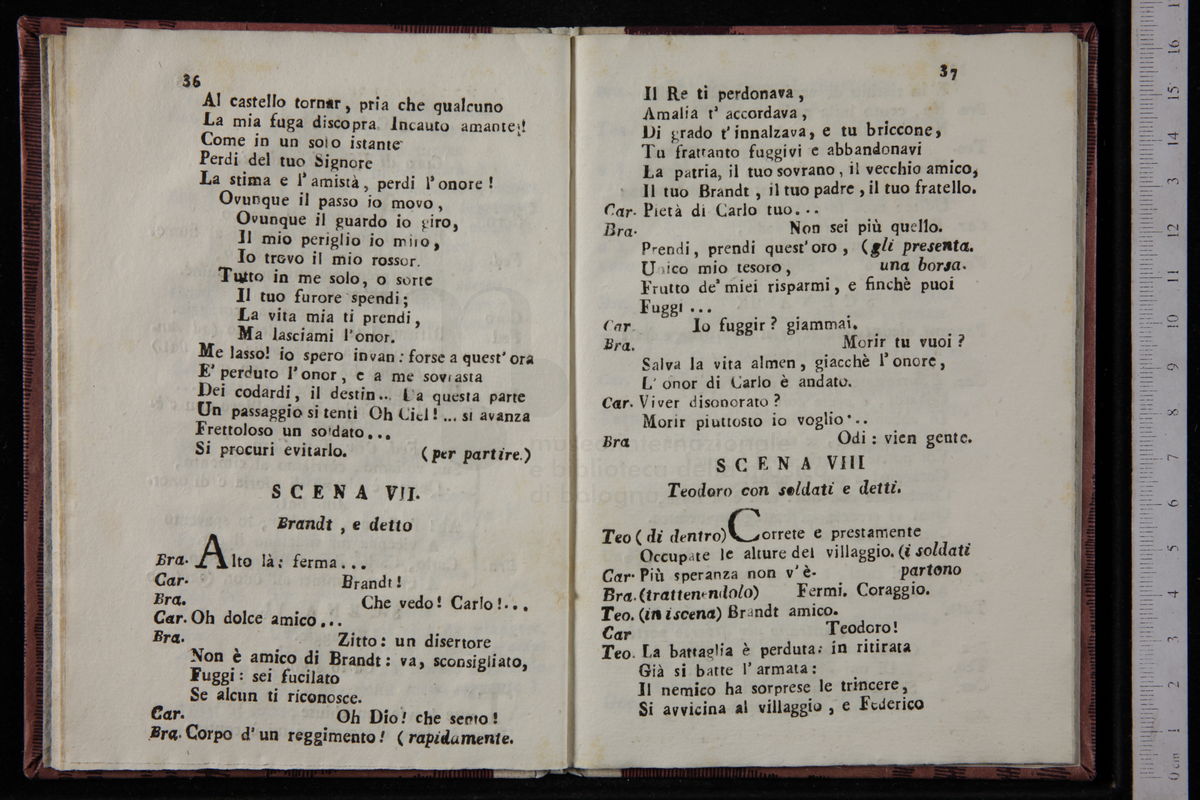 36
Al castello tornar, pria che qualcuno
La mia fuga discopra. Incauto amante!
Come in un solo istante
Perdi del tuo Signore
La stima e l'amistà, perdi l'onore!
Ovunque il passo io movo,
Ovunque il guardo io giro,
Il mio periglio io miro,
Io trovo il mio rossor.
Tutto in me solo, o sorte
Il tuo furore spendi;
La vita mia ti prendi,
Ma lasciami l'onor.
Me lasso! io spero invan: forse a quest'ora
E' perduto l'onor, e a me sovrasta
Dei codardi, il destin... Da questa parte
Un passaggio si tenti Oh Ciel!... si avanza
Frettoloso un soldato...
Si procuri evitarlo. (per partire.)
SCENA VII.
Brandt, e detto
Bra. Alto là: ferma...
Car. Brandt!
Bra. Che vedo! Carlo!...
Car. Oh dolce amico...
Bra. Zitto: un disertore
Non è amico di Brandt: va, sconsigliato,
Fuggi: sei fucilato
Se alcun ti riconosce.
Car. Oh Dio! che sento!
Bra. Corpo d'un reggimento! (rapidamente.
37
Il Re ti perdonava,
Amalia t'accordava,
Di grado t'innalzava, e tu briccone,
Tu frattanto fuggivi e abbandonavi
La patria, il tuo sovrano, il vecchio amico,
Il tuo Brandt, il tuo padre, il tuo fratello.
Car. Pietà di Carlo tuo...
Bra. Non sei più quello.
Prendi, prendi quest'oro, (gli presenta.
Unico mio tesoro, una borsa.
Frutto de' miei risparmi, e finchè puoi
Fuggi...
Car. Io fuggir? giammai.
Bra. Morir tu vuoi?
Salva la vita almen, giacchè l'onore,
L'onor di Carlo è andato.
Car. Viver disonorato?
Morir piuttosto io voglio...
Bra Odi: vien gente.
SCENA VIII
Teodoro con soldati e detti.
Teo (di dentro) Correte e prestamente
Occupate le alture del villaggio. (i soldati
Car. Più speranza non v'è. partono
Bra. (trattenendolo) Fermi. Coraggio.
Teo. (in iscena) Brandt amico.
Car Teodoro!
Teo. La battaglia è perduta: in ritirata
Già si batte l'armata:
Il nemico ha sorprese le trincere,
Si avvicina al villaggio, e Federico
museo internazionale
e biblioteca della
di bologna
0 cm 1 2 3 4 5 6 7 8 9 10 11 12 13 14 15 16